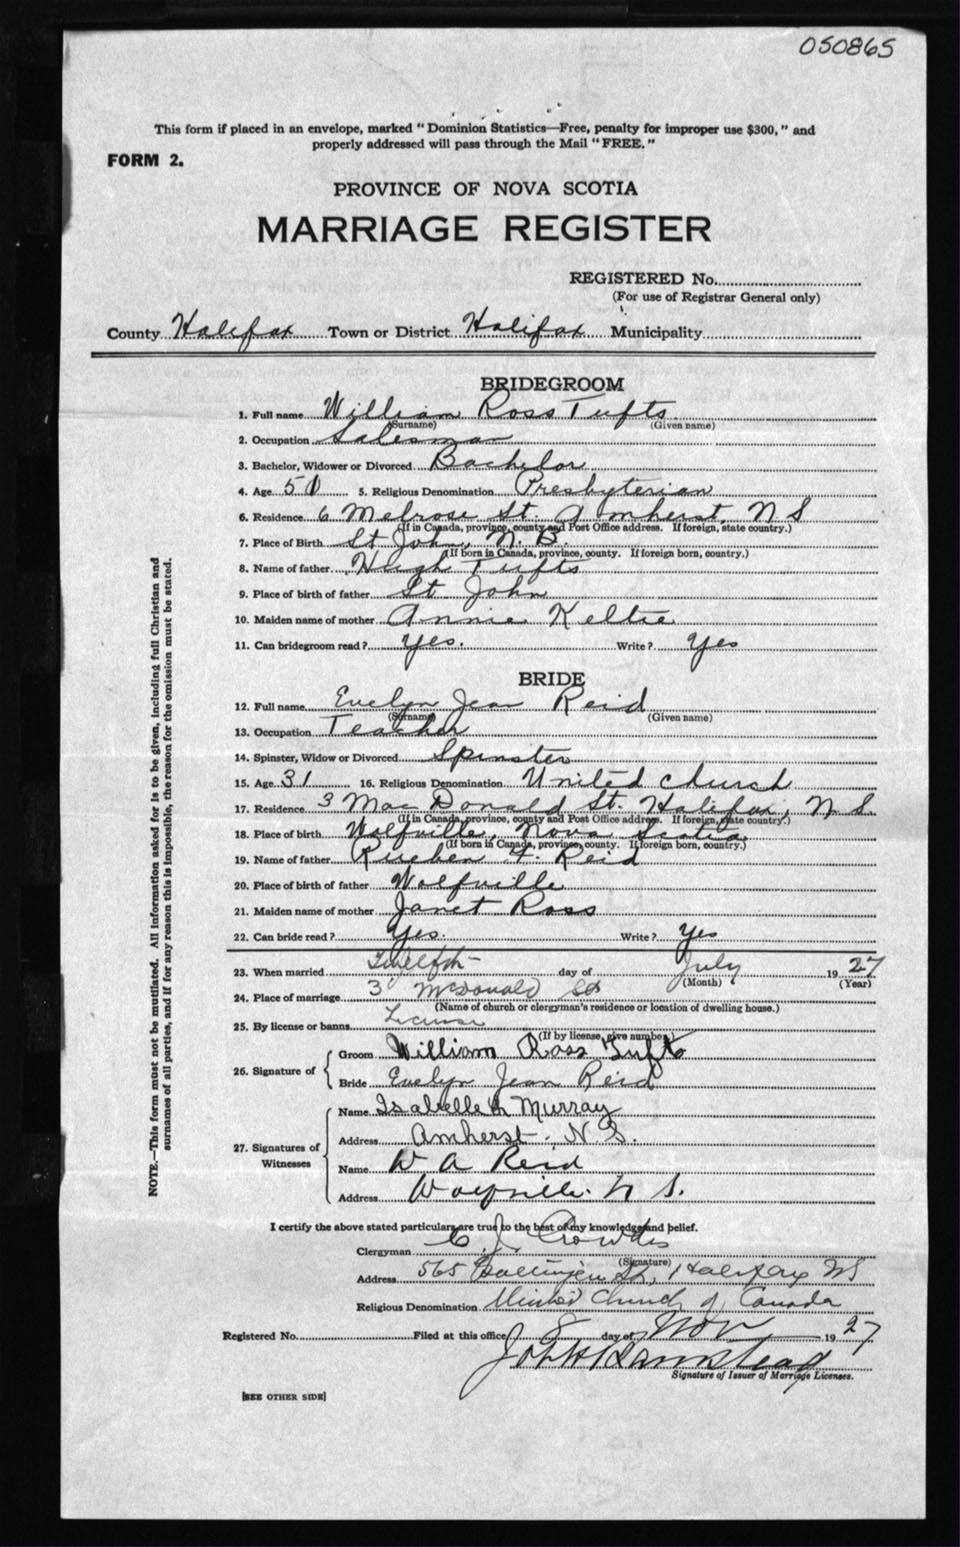 050865
This form if placed in an envelope, marked "Dominion Statistics—Free, penalty for improper use $300," and
properly addressed will pass through the Mail "FREE."
FORM 2.
PROVINCE OF NOVA SCOTIA
MARRIAGE REGISTER
REGISTERED No.
(For use of Registrar General only)
County Halifax Town or District Halifax Municipality
BRIDEGROOM
1. Full name William Ross Tufts
(Surname) (Given name)
2. Occupation Salesman
3. Bachelor, Widower or Divorced Bachelor
4. Age 51 5. Religious Denomination Presbyterian
6. Residence 6 Melrose St. Amherst, N S
(If in Canada, province, county and Post Office address. If foreign, state country.)
7. Place of Birth St John, N. B.
(If born in Canada, province, county. If foreign born, country.)
8. Name of father Hugh Tufts
9. Place of birth of father St John
10. Maiden name of mother Annie Keltie
11. Can bridegroom read? Yes. Write? Yes
BRIDE
12. Full name Evelyn Jean Reid
(Surname) (Given name)
13. Occupation Teacher
14. Spinster, Widow or Divorced Spinster
15. Age 31 16. Religious Denomination United church
17. Residence 3 Mac Donald St. Halifax, N. S.
(If in Canada, province, county and Post Office address. If foreign, state country.)
18. Place of birth Wolfville, Nova Scotia
(If born in Canada, province, county. If foreign born, country.)
19. Name of father Rueben Reid
20. Place of birth of father Wolfville
21. Maiden name of mother Janet Ross
22. Can bride read? Yes. Write? Yes
23. When married Twelfth day of July 19 27
(Month) (Year)
24. Place of marriage 3 McDonald St
(Name of church or clergyman's residence or location of dwelling house.)
25. By license or banns License
(If by license, give number)
26. Signature of
Groom William Ross Tufts
Bride Evelyn Jean Reid
27. Signatures of Witnesses
Name Isabelle Murray
Address Amherst, N. S.
Name W A Reid
Address Wolfville. N S.
I certify the above stated particulars are true to the best of my knowledge and belief.
Clergyman C J. Crowdis
(Signature)
Address 565 St, Halifax NS
Religious Denomination United Church of Canada
Registered No. Filed at this office 8 day of Nov 19 27
Signature of Issuer of Marriage Licenses.
[SEE OTHER SIDE]
NOTE.—This form must not be mutilated. All information asked for is to be given, including full Christian and
surnames of all parties, and if for any reason this is impossible, the reason for the omission must be stated.